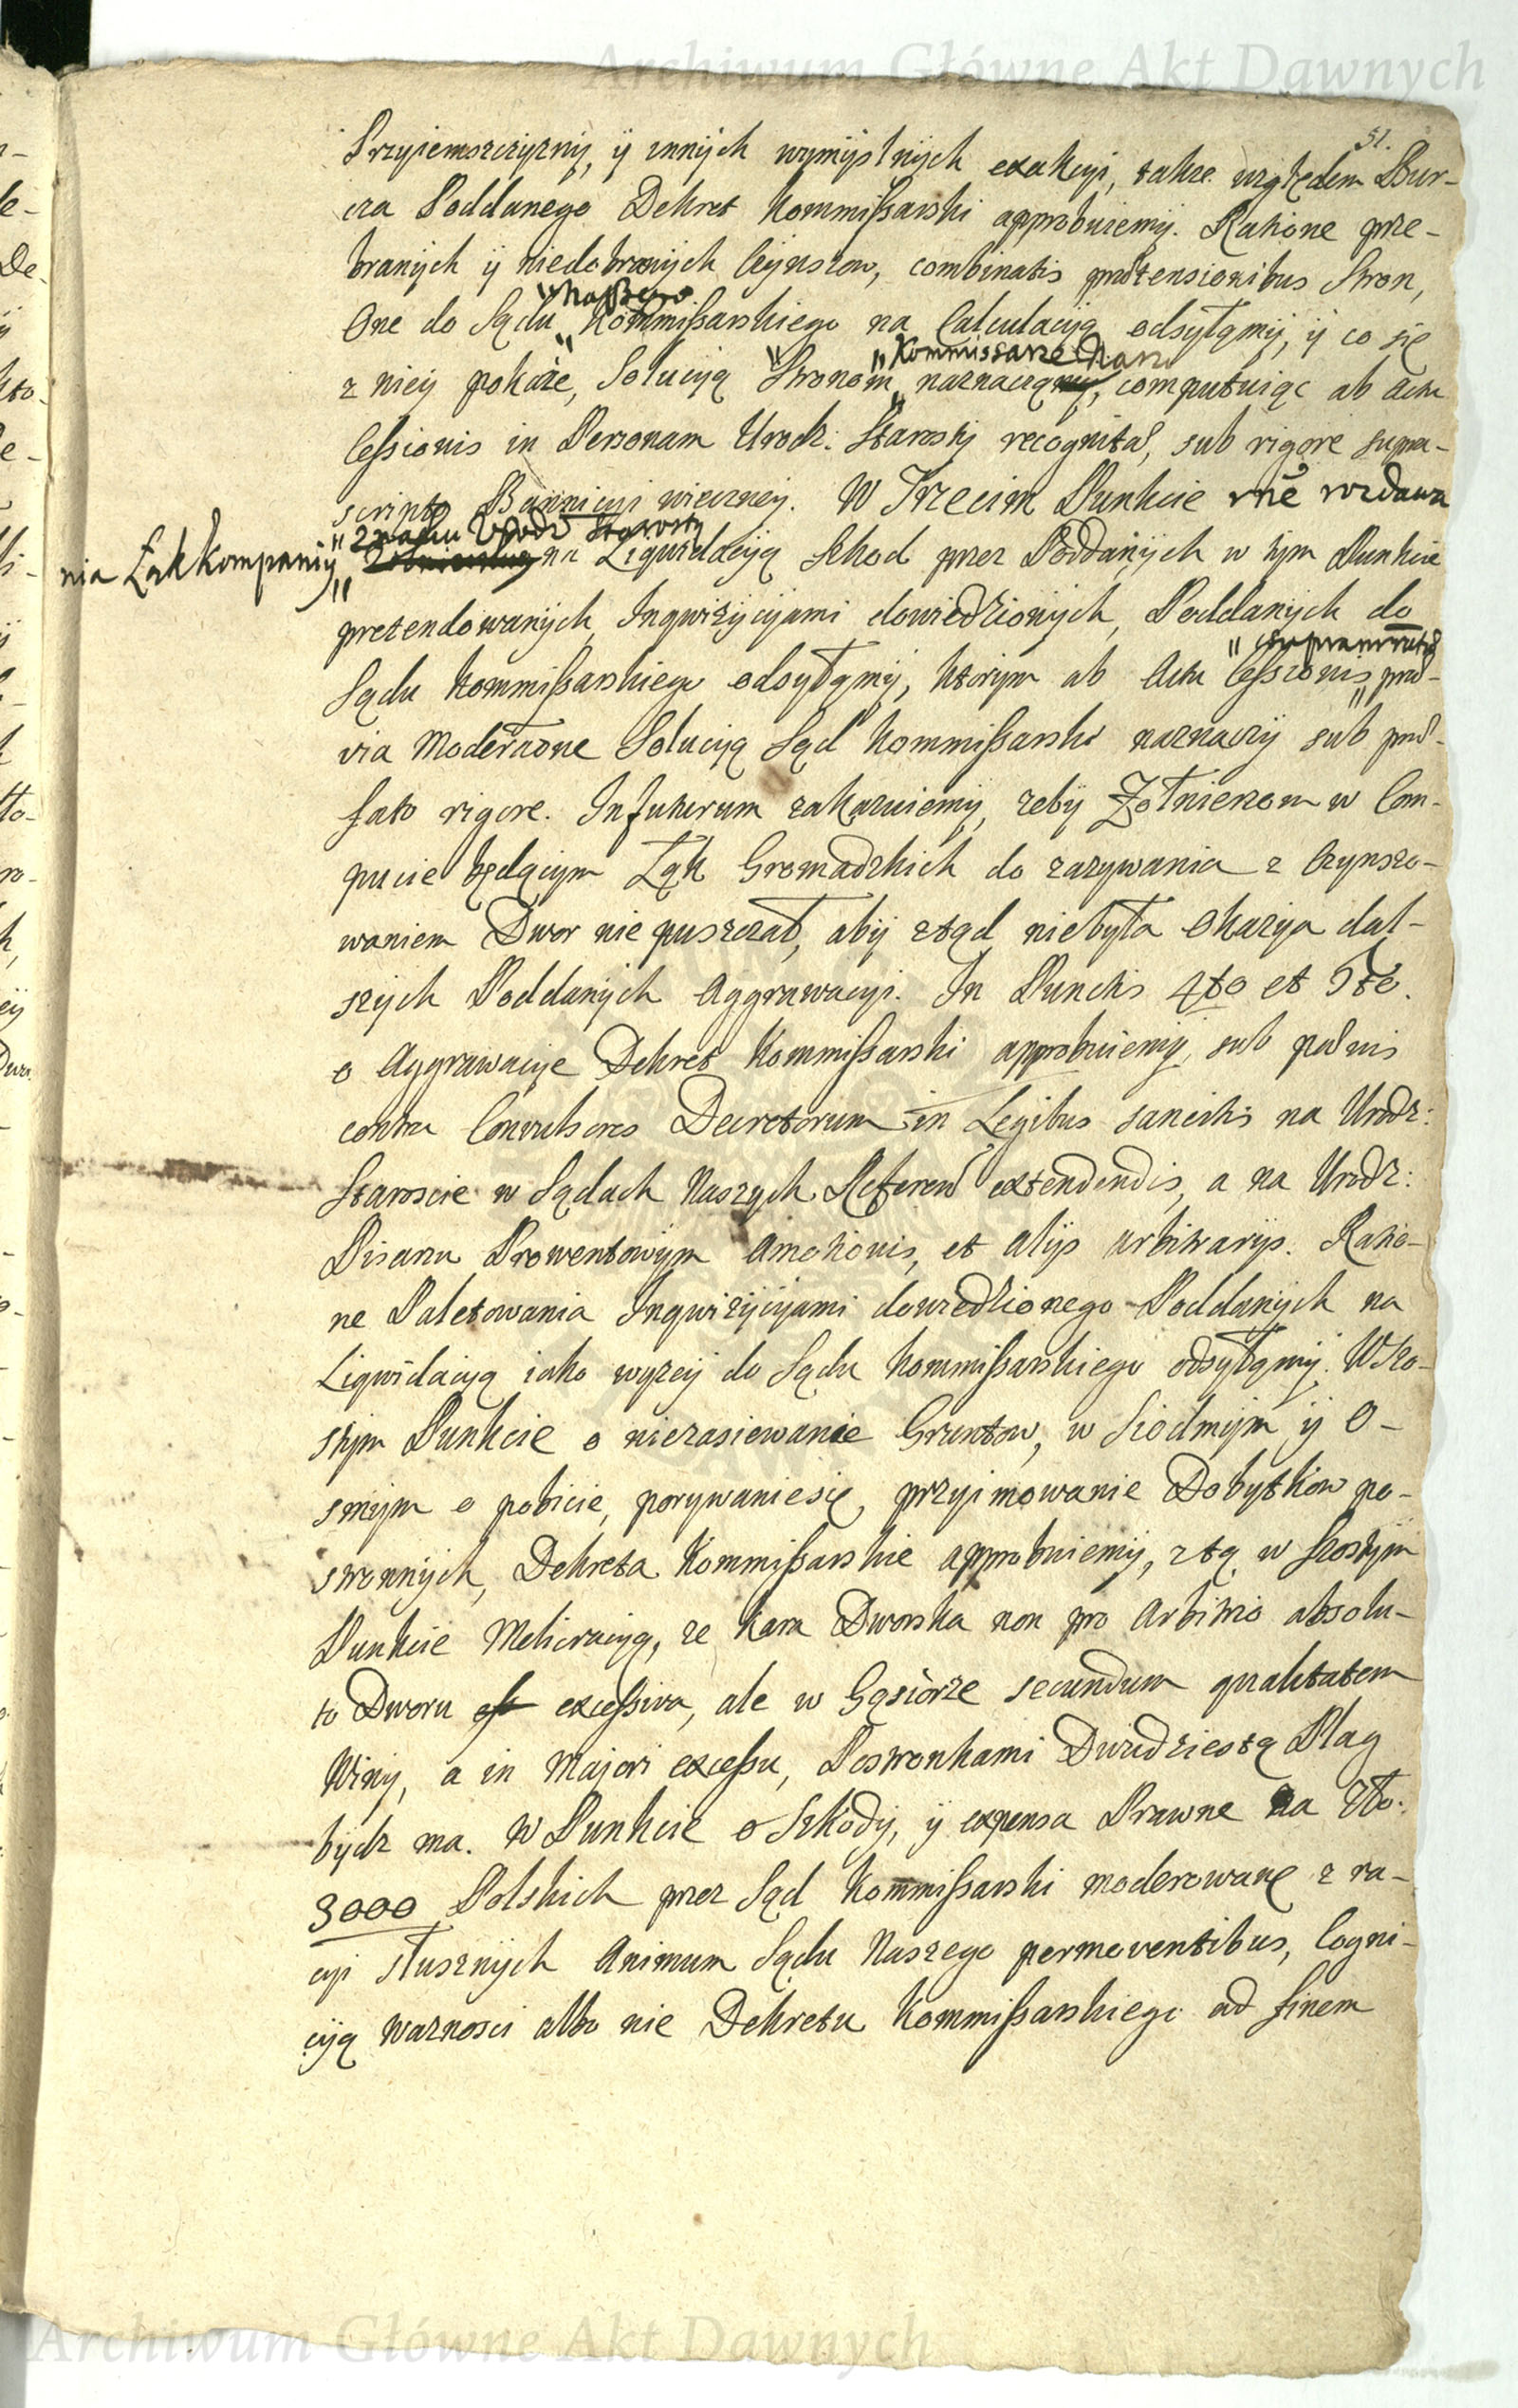 Archiwum Główne Akt Dawnych
51.
Przyiemszczyzny, ÿ innÿch wymÿslnÿch exakcÿi, takze względem Bur-
cza Poddanego Dekret Kommissarski approbuiemÿ. Ratione prze-
branÿch ÿ niedobranÿch Czÿnszow, combinatis prætensionibus Stron,
" naszego
One do Sądu " Kommissarskiego na Calculacÿą odsyłamÿ, ÿ co się
" Kommissarze Nasi
z nieÿ pokaże, Solucÿą Stronom " naznaczą, computuiąc ab actu
Cessionis in Personam Urodz: Starosty recognitæ, sub rigore supra-
scripto Bannicÿi wieczneÿ. W Trzecim Punkcie rñe rozdawa
" Urodz Starosty
nia Łąk kompanÿi " na Liquidacÿą Szkod przez Poddanÿch w tÿm Punkcie
pretendowanÿch, Inqwizÿcÿami dowiedzionÿch, Poddanÿch do
Sądu Kommissarskiego odsyłamÿ, ktorÿm ab Actu Cessionis " præ-
via Moderatione Solucÿą Sąd Kommissarski naznaczÿ sub præ-
fato rigore. In futurum zakazuiemÿ, zebÿ Zołnierzom w Com-
pucie będącÿm Łąk Gromadzkich do zazywania z Czynszo-
waniem Dwor nie puszczał, abÿ ztąd niebÿła Okazya dal-
szÿch Poddanÿch Aggrawacÿi. In Punctis 4to et 5to.
o Aggrawacÿe Dekret Kommissarski approbuiemÿ, sub pœnis
contra Convulsores Decretorum in Legibus sancitis na Urodz:
Staroscie w Sądach Naszych Referen̄ extendendis, a na Urodz:
Pisarzu Prowentowÿm Amotionis, et alÿs arbitrarÿs. Ratio-
ne Paletowania Inqwizÿcÿami dowiedzionego Poddanÿch na
Liqwidacÿą iako wyzeÿ do Sądu Kommissarskiego odsyłamÿ. W Szo-
stÿm Punkcie o niezasiewanie Gruntow, w Siodmÿm ÿ O-
smÿm o pobicie, porywaniesię, przyimowanie Dobytkow po-
stronnÿch, Dekreta Kommissarskie approbuiemÿ, ztą w szostÿm
Punkcie Melioracÿą, ze kara Dworska non pro Arbitrio absolu-
to Dworu excessiva, ale w Gąsiorze secundum qualitatem
Winÿ, a in Majori excessu, Postronkami Dwudziestą Plag
bÿdz ma. W Punkcie o Szkodÿ, ÿ expensa Prawne na Zło:
3000 Polskich przez Sąd Kommissarski moderowane z ra-
cyi słusznÿch Animum Sądu Naszego permoventibus, Cogni-
cÿą waznosci albo nie Dekretu Kommissarskiego ad finem
Archiwum Główne Akt Dawnych